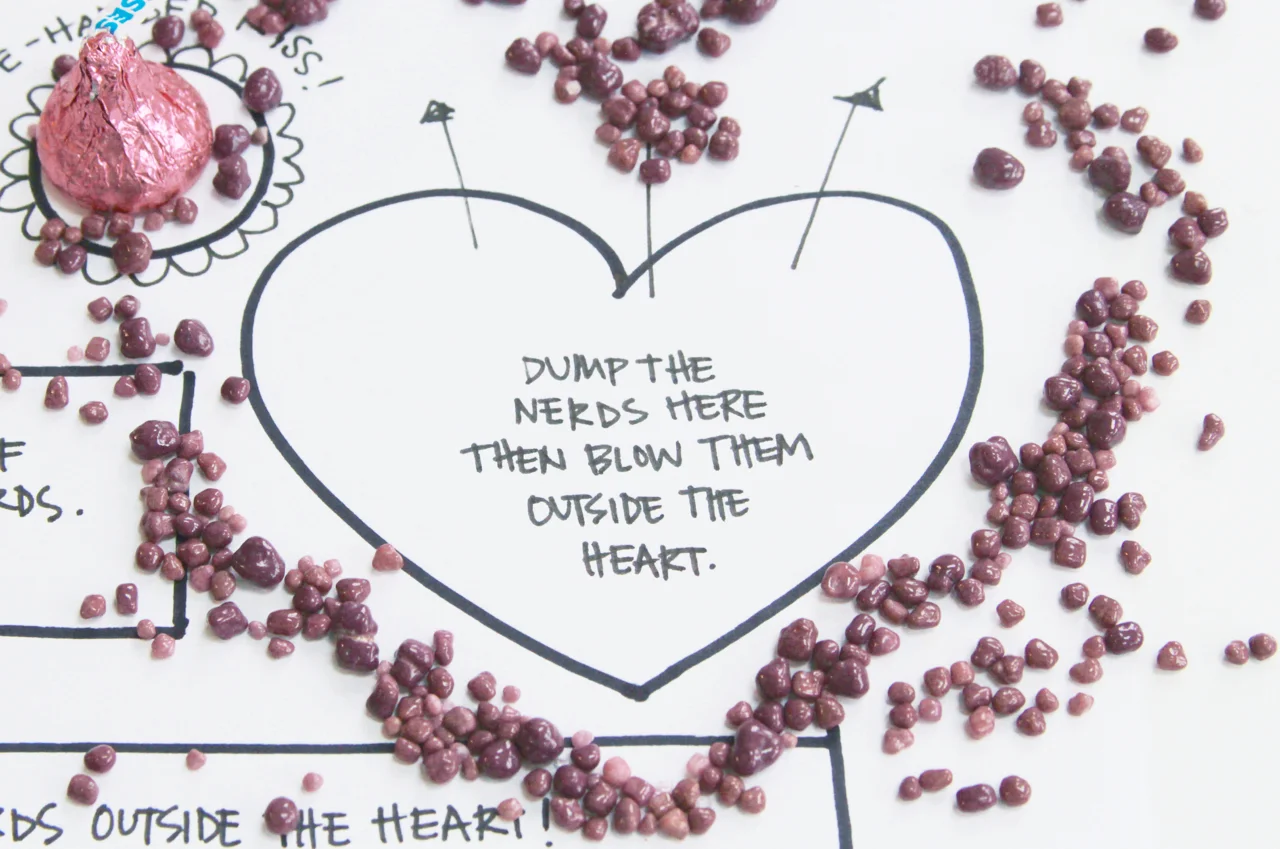 SES
KISS!
DUMP THE
NERDS HERE
THEN BLOW THEM
OUTSIDE THE
HEART.
F
RDS.
DS OUTSIDE THE HEART!